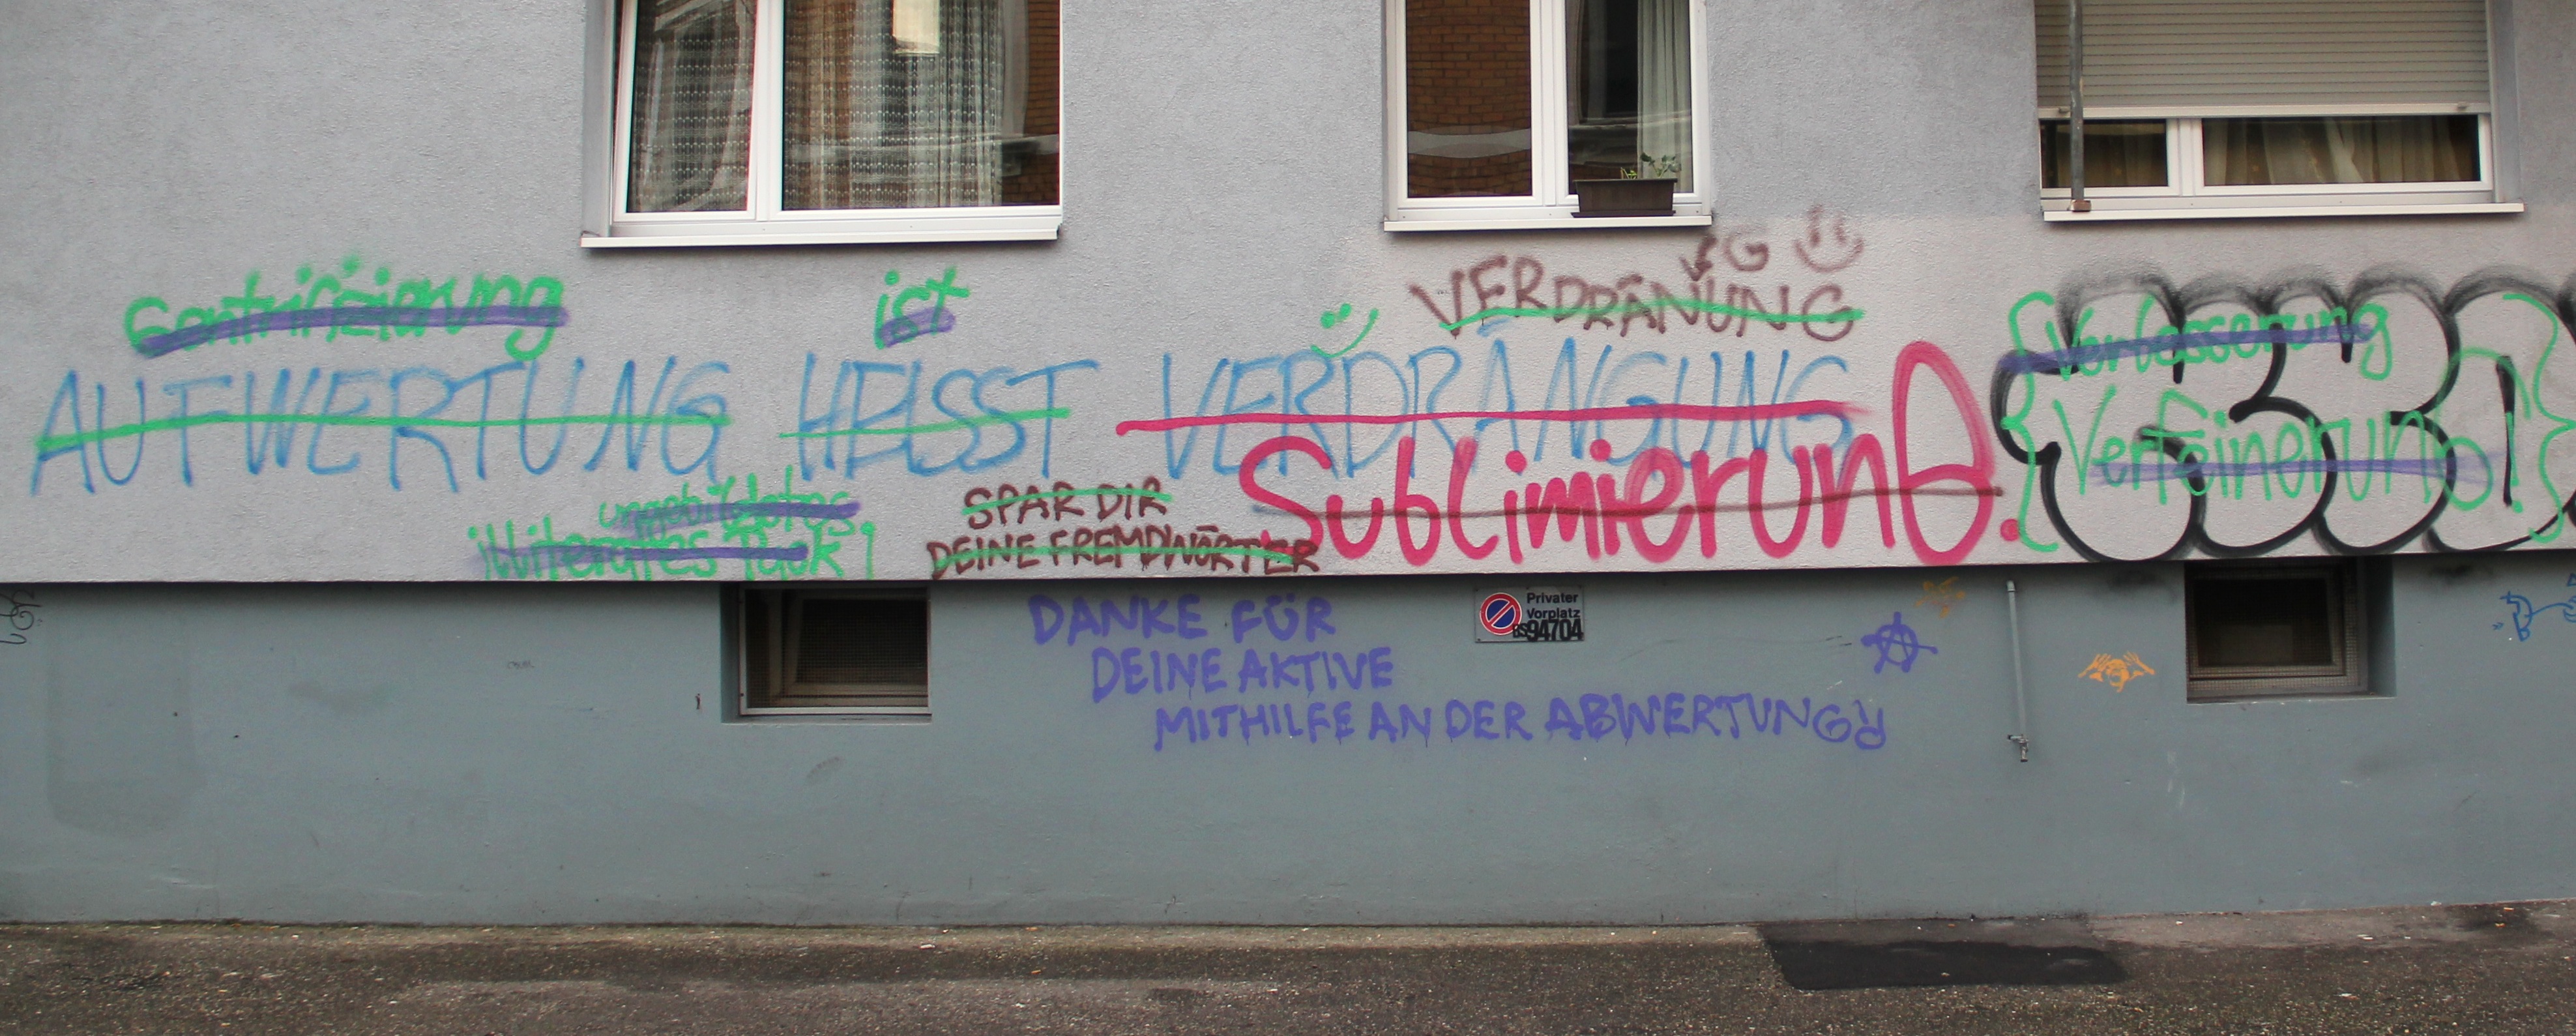 Gentrifizierung ist
VERDRÄNUNG
G
AUFWERTUNG HEISST VERDRÄNGUNG
Verbesserung
Verfeinerung!
ungebildetes
illiterates Pack!
SPAR DIR
DEINE FREMDWÖRTER
Sublimierung.
DANKE FÜR
DEINE AKTIVE
MITHILFE AN DER ABWERTUNG
Privater
Vorplatz
BS94704